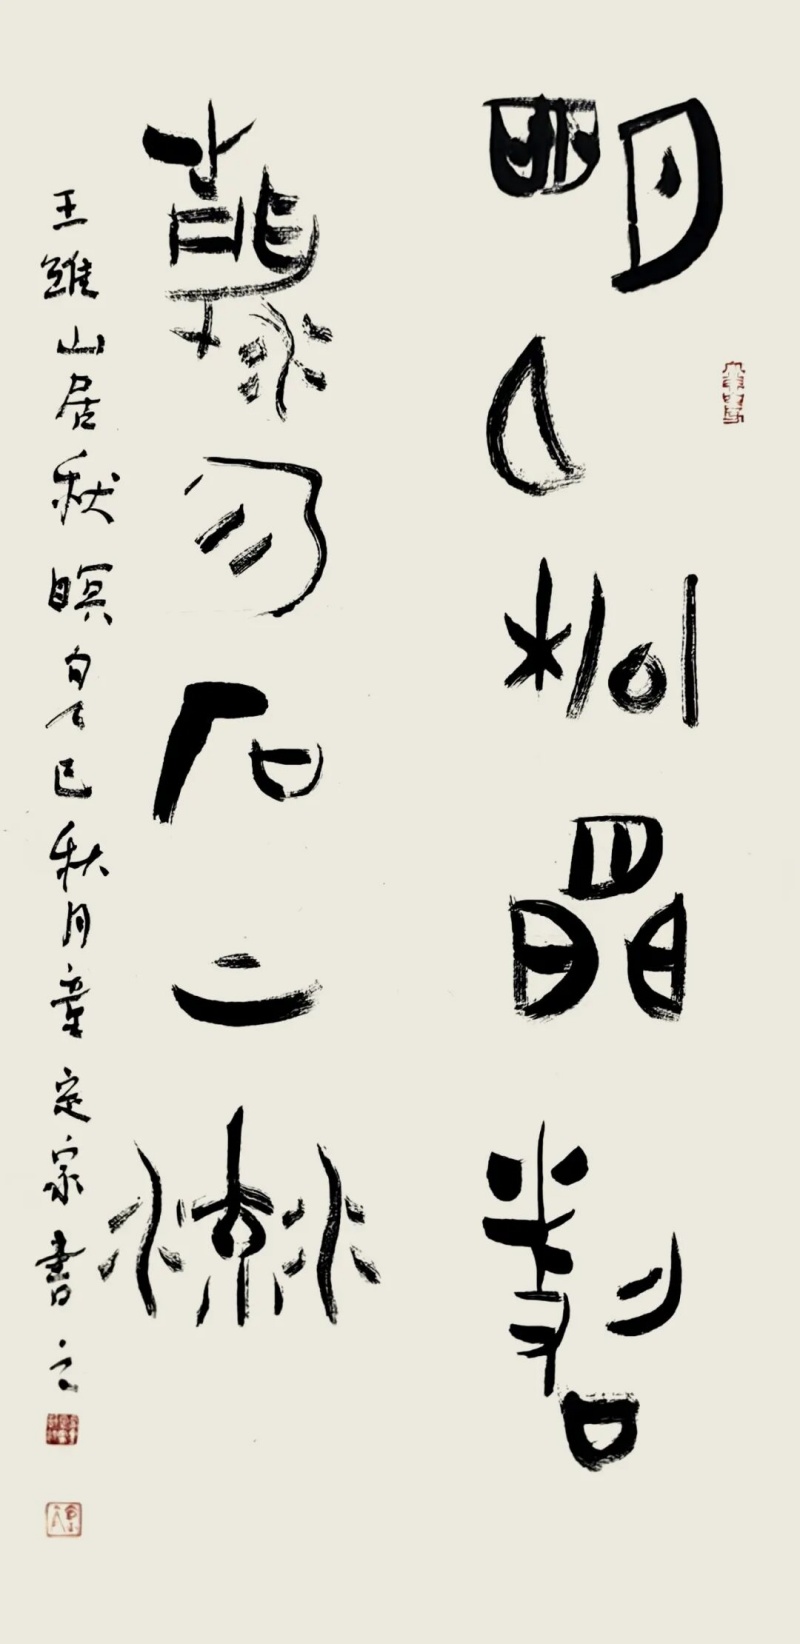 明月松間照
清泉石上流
王維山居秋暝句巳秋月童定書之